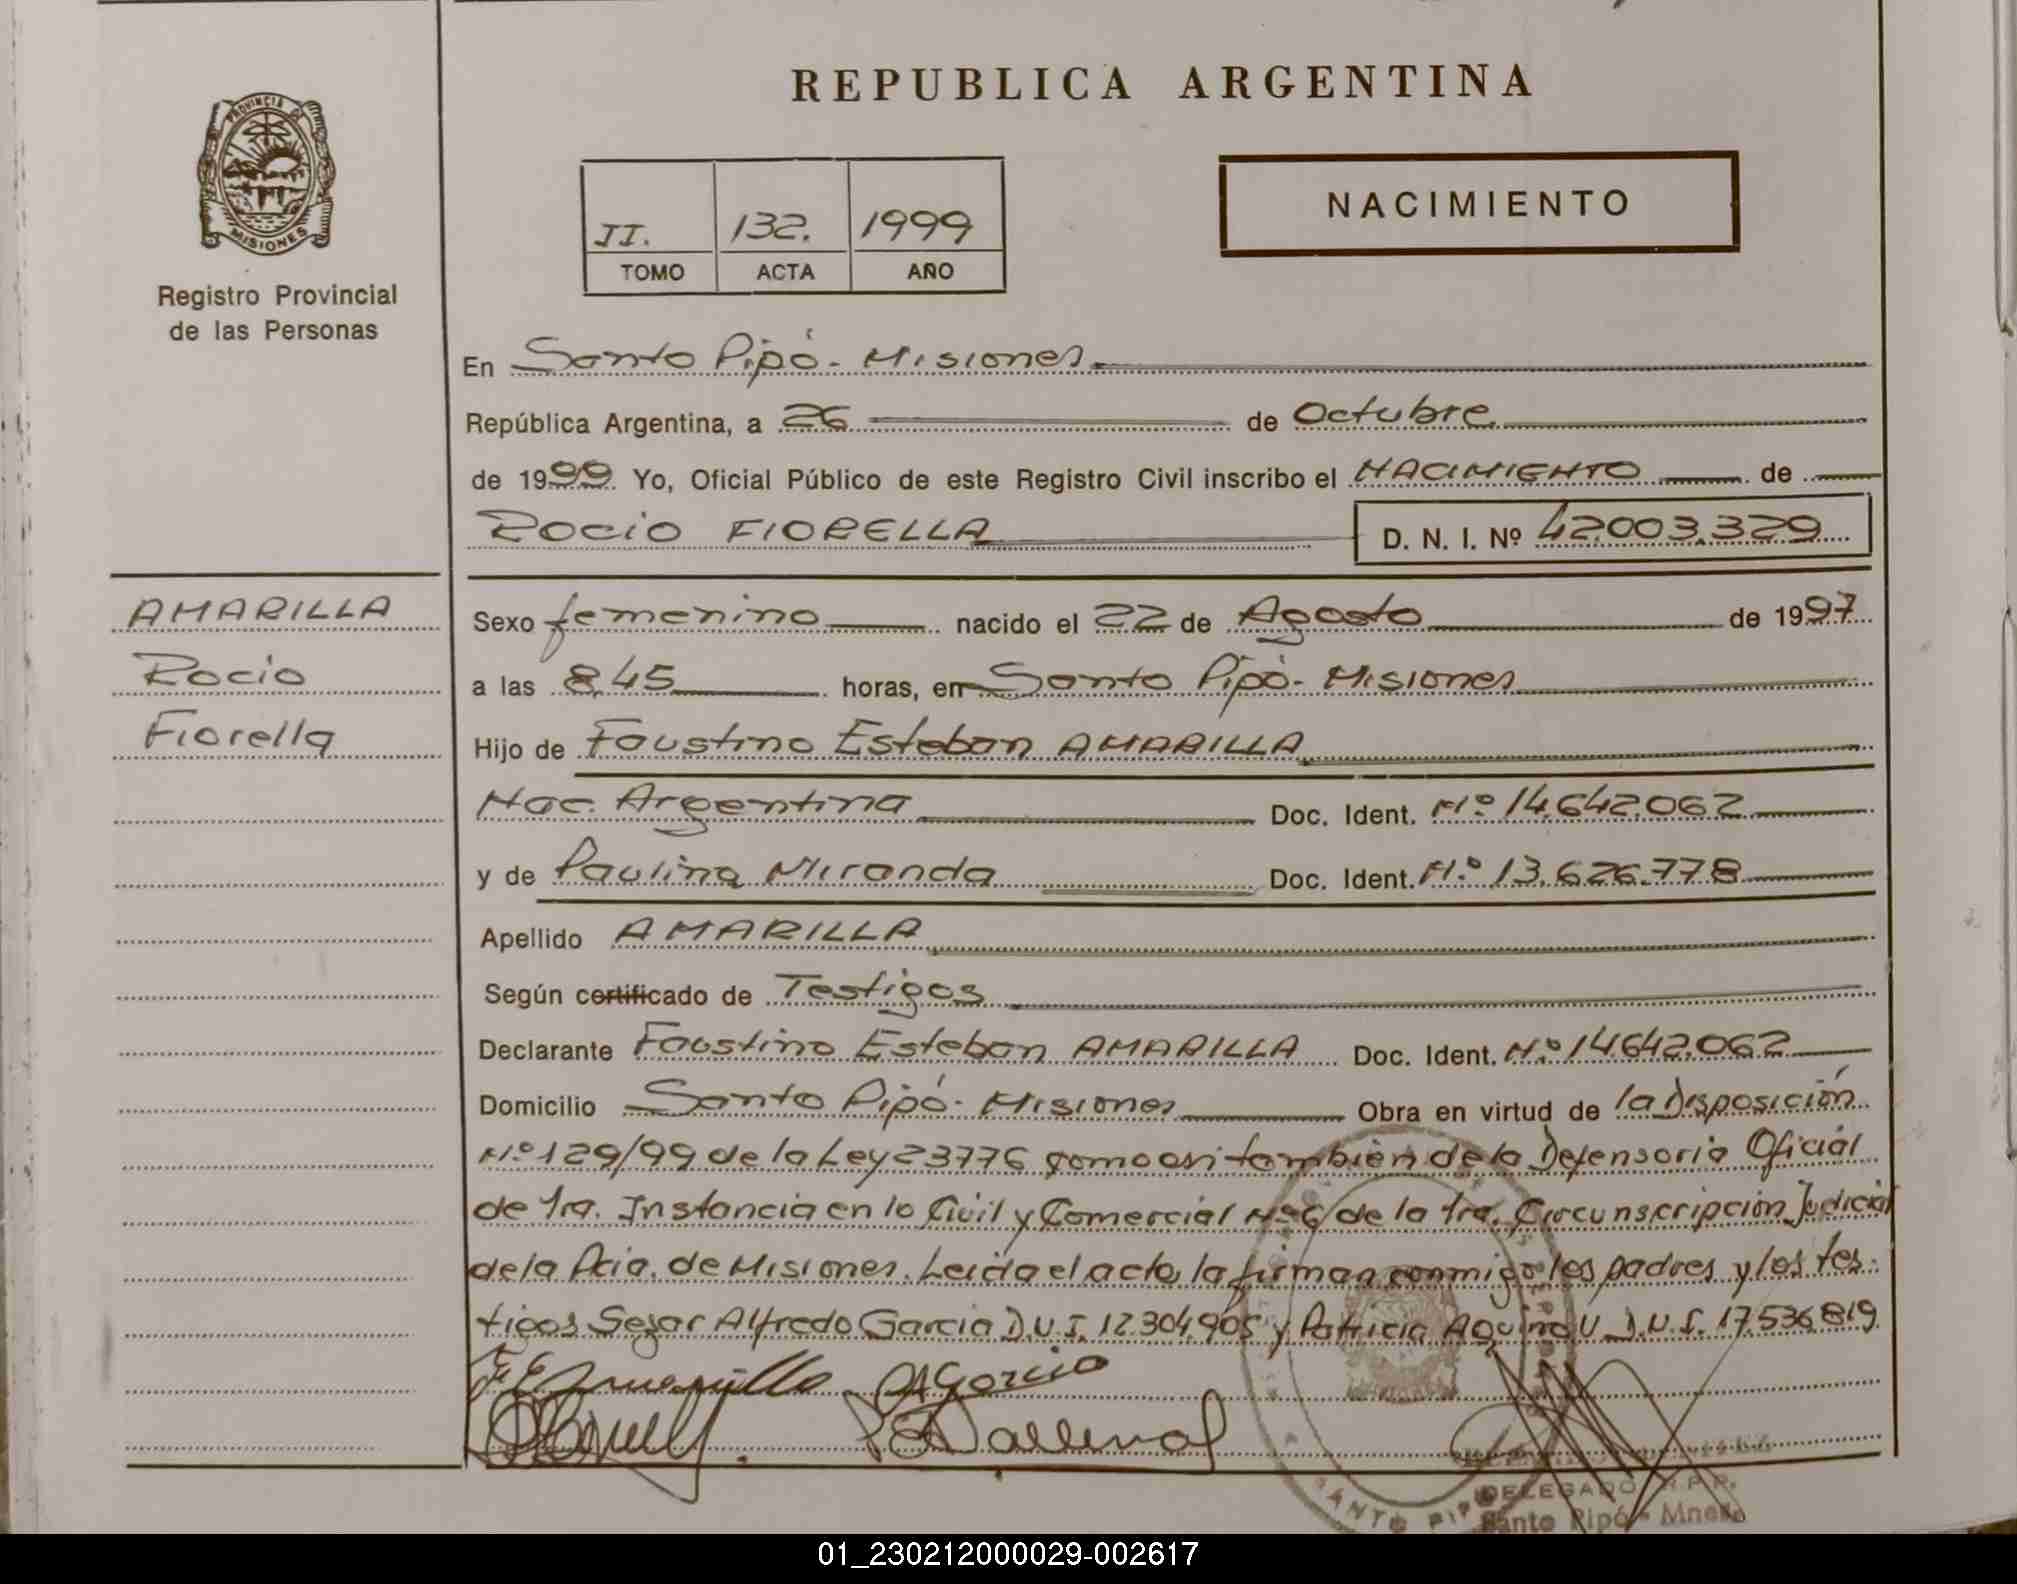 REPUBLICA ARGENTINA
PROVINCIA DE
MISIONES
Registro Provincial
de las Personas
II. 132. 1999
TOMO ACTA AÑO
NACIMIENTO
En Santo Pipó - Misiones
República Argentina, a 26 de Octubre
de 1999 Yo, Oficial Público de este Registro Civil inscribo el NACIMIENTO de
ROCIO FIORELLA D. N. I. Nº 42.003.329
AMARILLA
Rocio
Fiorella
Sexo femenino nacido el 22 de Agosto de 1997
a las 8,45 horas, en Santo Pipó - Misiones
Hijo de Faustino Esteban AMARILLA
Nac. Argentina Doc. Ident. Nº 14.642.062
y de Paulina Miranda Doc. Ident. Nº 13.626.778
Apellido AMARILLA
Según certificado de Testigos
Declarante Faustino Esteban AMARILLA Doc. Ident. Nº 14.642.062
Domicilio Santo Pipó - Misiones Obra en virtud de la Disposición
Nº 129/99 de la Ley 23776 como asi tambien de la Defensoria Oficial
de 1ra. Instancia en lo Civil y Comercial Nº 6 de la 1ra. Circunscripción Judicial
de la Pcia. de Misiones. Leida el acta, la firman conmigo los padres y los tes-
tigos Sesar Alfredo Garcia D.U.I. 12304.905 y Patricia Aquino D.U.I. 17.536.819
SANTO PIPO
DELEGADO R.P.P.
Santo Pipó - Mnes.
01_230212000029-002617